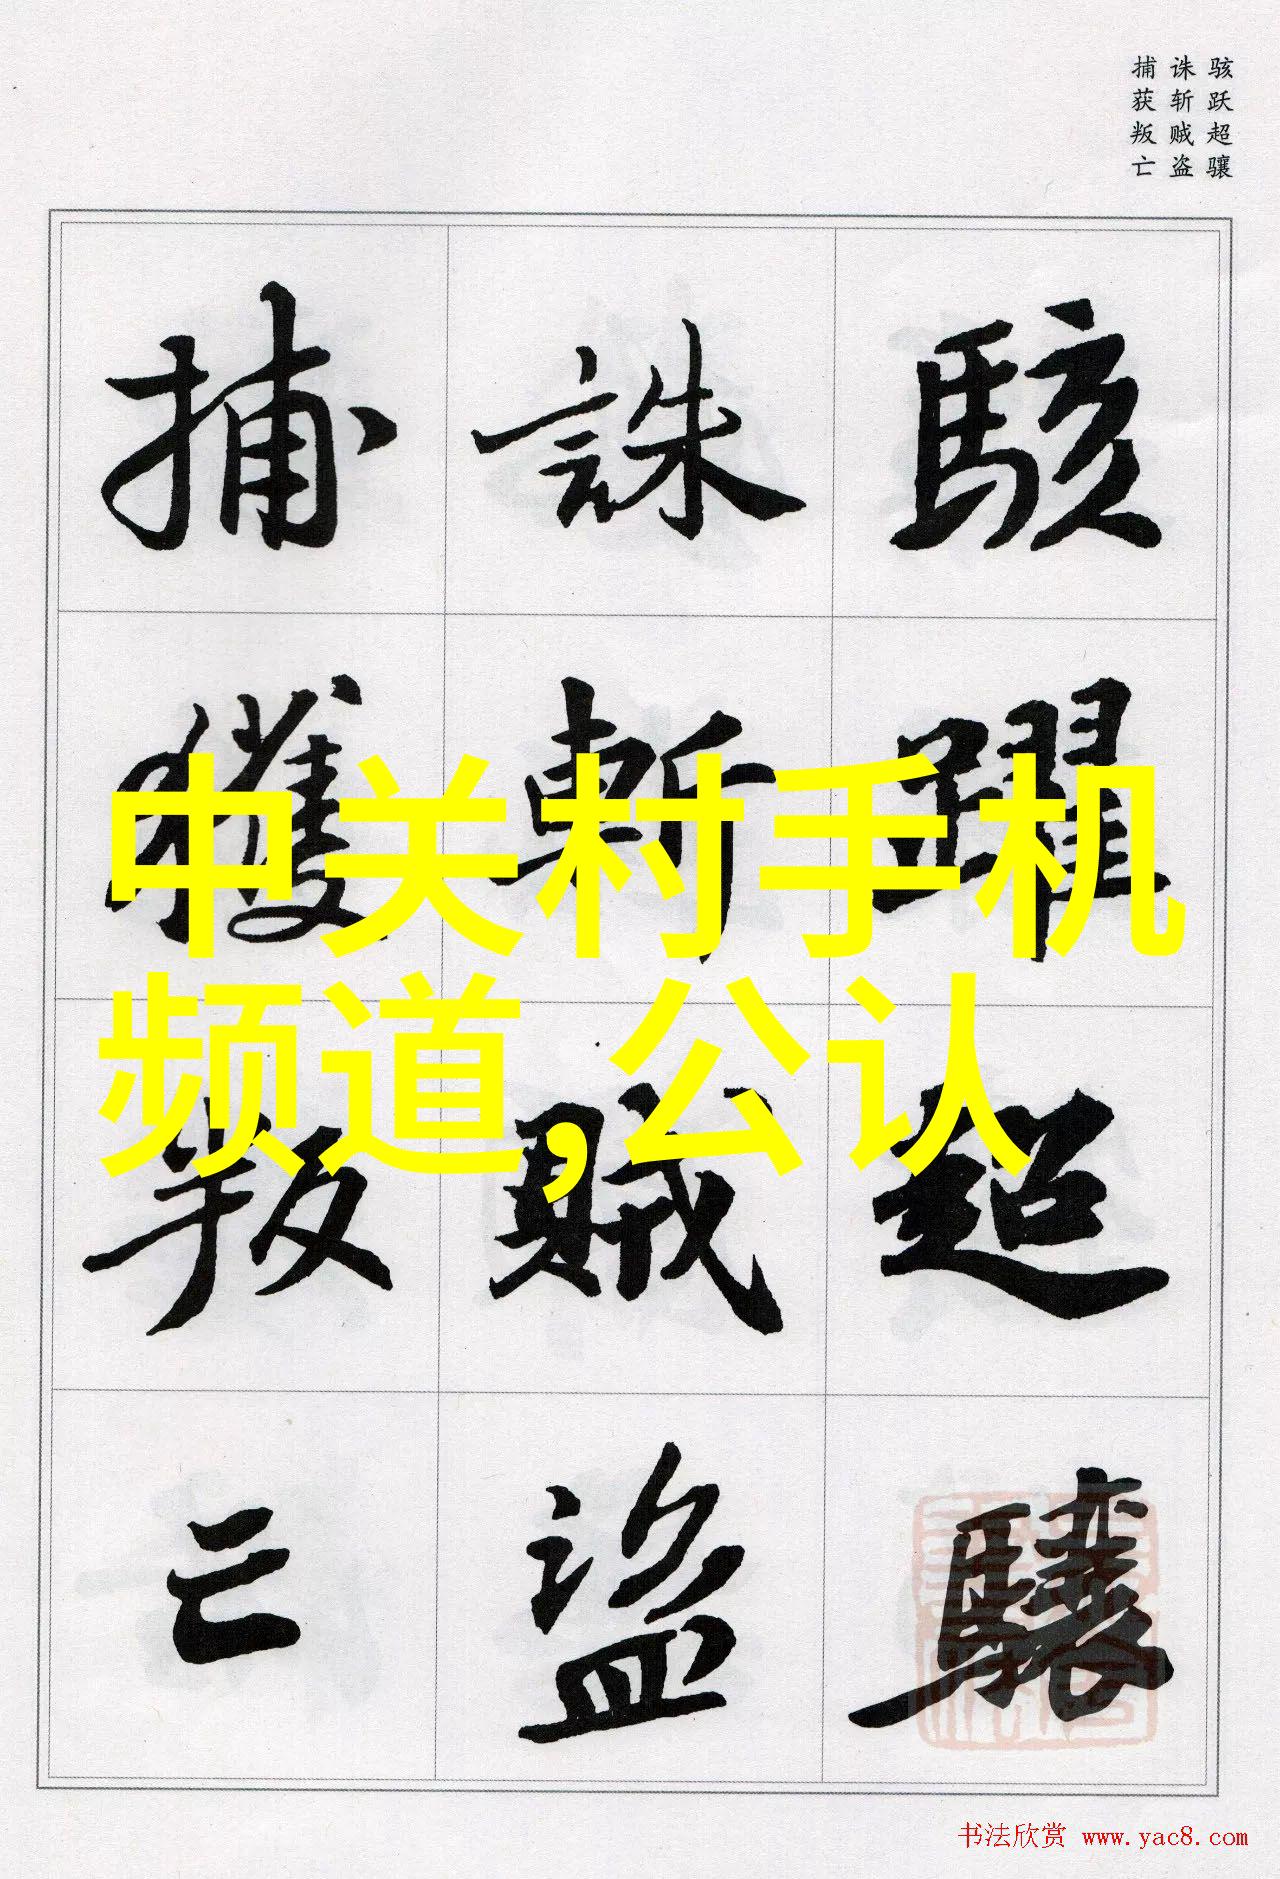 骇跃超骧
诛斩贼盗
捕获叛亡
駭躍超驤
誅斬賊盜
捕獲叛亡
中关村手机
频道,公认
书法欣赏 www.yac8.com